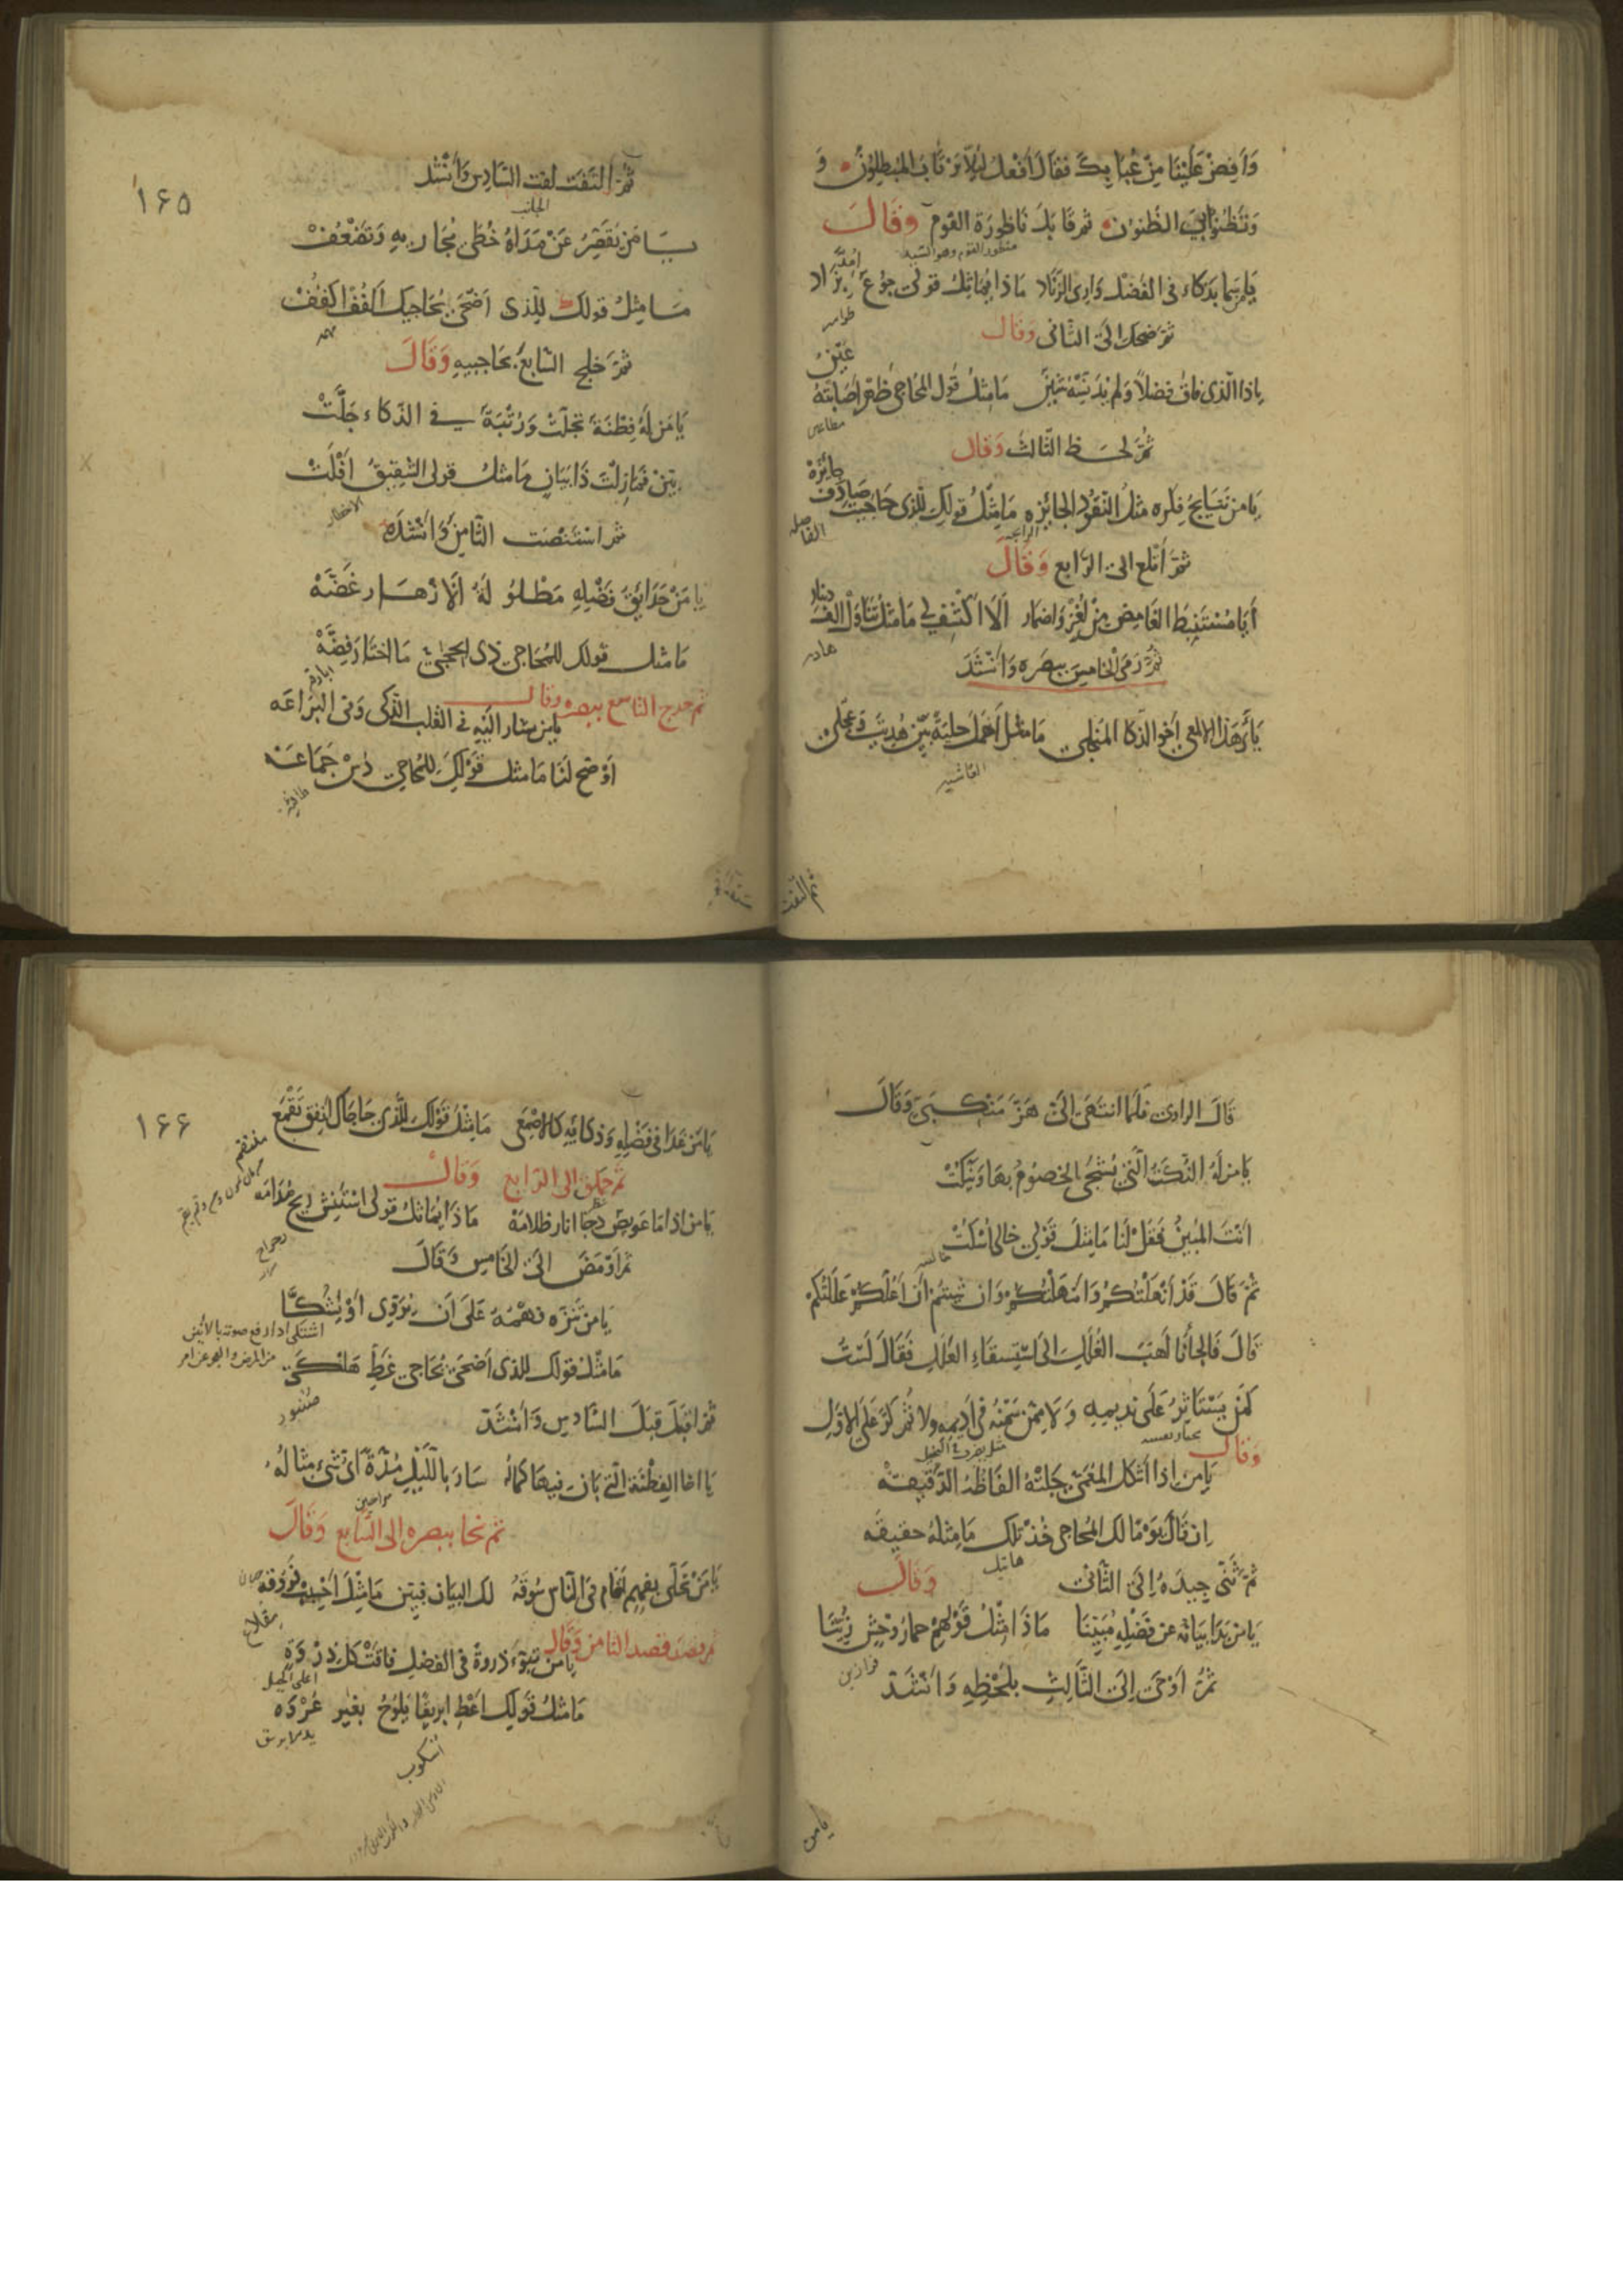 وَاَفِضْ عَلَيْنَا مِنْ عُبَابِكَ فَقَالَ اَفْعَلُ لِئَلَّا يَرْتَابَ المُبْطِلُوْنَ وَ
وَتَظُنُّوا بِيَ الظُّنُوْنَ ثم قَابَلَ نَاظُورَة القوم وَقَالَ
يَا مَنْ سَمَا بِذَكاء فى الفَضْل وَارِى الزِّنَاد مَاذا يُمَاثِلُ قولى جُوْعٌ اُمِدَّ بِزاد
طوامير
ثمّ ضحك الىَ الثّانى وَقال
يا ذا الّذى فاق فضلاً وَلَمْ يُدَنِّسْهُ شَيْن مَا مِثْلُ قَول المُحاجى ظَهْر اَصَابَتْهُ عَيْن
مطاعين
ثُمَّ لحَظَ الثّالث وَقال
يَا مَن نَتَايجُ فِكْرِه مثلُ النّقود الجائزه مَا مِثْلُ قولك لِلَّذى حَاجَيْت صَادَفَ جائزة
الفاصله
ثُمَّ اَتْلَعَ الى الرّابع وَقَالَ
أَيَا مُسْتَنْبِطَ الغَامِضِ مِنْ لُغْزٍ وَاضمار اَلَا اكْشِفْ لى مَا مثل تَنَاوَلْ اَلْفَ دينار
هاديه
ثُمَّ رَمَى الْخَامِسَ ببَصَرِه وَاَنْشَدَ
يَا اَيُّهَذَا الالمعى اَخُو الذّكا المُنْجلى مَا مثل اَهْمَلَ حِليَةً بَيِّنْ هُدِيْتَ وَعَجِّلِ
الغاشيه
ثم التفت
١٦٥
ثُمَّ الْتَفَتَ لفت السّادِس وَاَنْشَدَ
الجانب
يَا مَنْ تقَصِّرُ عَنْ مَدَاهُ خُطَى مُجَارِيهِ وَتَضْعُفْ
مَا مِثْلُ قولك لِلّذى اَضْحَى يُحَاجِيك اكْفُفْ اكْفُفْ
مهمه
ثمَّ خلج السّابعَ بحَاجبيهِ وَقَالَ
يَا مَن لَهُ فِطْنَة تجلّت وَرُتْبَة فى الذّكاء جَلَّتْ
بَيِّنْ فَمَا زِلْتَ ذَا بَيَانٍ مَا مثل قولى الشّقيقُ اَفْلَتْ
الاخطار
ثم اسْتَنْصَتَ الثّامِنَ وَاَنْشَدَه
يا مَنْ حَدَائِقُ فَضْلِهِ مَطْلُولَهُ اَلازهَار غَضَّهْ
مَا مثل قولك للمُحَاجى ذِى الْحِجَى مَا اخْتَارَ فِضَّهْ
ابارقه
ثم حدج التاسع ببصره وقال
يا مَن يشار اليَه فى القلب الذّكى وَفى البَرَاعَه
اَوْضِحْ لَنَا مَا مثل قَوْلِكَ لِلْمُحَاجى دُسْ جَمَاعَه
طافيه
قَالَ الراوى فَلَمَّا انتَهَى الىَّ هَزَّ مَنْكِبَىَّ وَقَالَ
يَا مَن لَهُ النُّكَتُ الَّتى يُشْجِى الخصُومَ بهَا وَيَنْكُتْ
اَنْتَ المُبِينُ فَقُلْ لَنَا مَا مِثْلُ قَوْلى خالى اسْكُتْ
خالصه
ثُمَّ قَالَ قَدْ اَنْهَلْتُكُمْ وَاَمْهَلْتُكُمْ وَان شِئتم اَنْ اَعُلَّكُمْ عَلَلْتُكُمْ
قَالَ فَالْجَأَنَا لَهَبُ الغُلَلِ اِلى اسْتِسقَاءِ العَلَلِ فَقَالَ لَسْتُ
كَمَنْ يَسْتَاثِرُ عَلَى نَدِيمِهِ وَلا مِمَّنْ سَمْنُهُ فى اَديمِهِ ثُمّ كَرَّ عَلَى الاوّل
وَقَالَ
يَا مَن اِذا اَشْكَلَ المُعَمّى جَلَتْهُ افكاره الدَّقيقهْ
اِن قَالَ يَوْمًا لك المُحاجى خُذْ تلك مَا مِثلهُ حقيقَه
هاتيك
ثمّ ثَنَى جِيدَهُ اِلىَ الثّانى وَقَالَ
يَا مَن بَدَا بَيَانه عن فَضْلِهِ مُبَيِّنَا مَاذا مِثْلُ قَوْلِهِمْ حمَارُ وَحْشٍ زُيِّنَا
فرازين
ثمَّ اَوْحَى اِلىَ الثَّالِثِ بلَحْظِهِ وَاَنْشَدَ
يا من
١٦٦
يَا مَن غَدَا فى فَضْلِهِ وَذكائِهِ كَالاصْمَعِى مَا مِثْلُ قَوْلِكَ لِلَّذى حَاجَاكَ اَنْفِقْ تَقْمَعِ
منتقم
ثم حملق الى الرّابع وَقَال
يَا مَن اذا مَا عَوِيصٌ دَجَا انار ظلامَهْ مَاذا يُمَاثِل قولى اسْتَنْشِ ريحَ مُدَامَه
رحراح
ثم اَوْمَضَ الىَ الخَامس وَقَالَ
يَا مَن تَنَزَّه فهْمُهُ عَلى اَن يُرَوِّى اَوْ يَشُكَّا
مَا مثل قولك للّذى اَضْحَى يُحَاجى غَطِّ هَلْكَى
صُنبور
ثمّ اقبَلَ قِبَلَ السّادِس وَاَنْشَدَ
يَا اخَا الفِطْنَة الّتى بَانَ فيهَا كمَالهُ سَارَ بِاللَّيْلِ مُدَّةً اَىُّ شَىْء مثالُهُ
سراحين
ثم نحا ببصره الى السّابع وَقَالَ
يَا مَنْ تَحَلّى بفَهمٍ اَقام فى النّاس سُوقَهُ لك البَيَان فبَيِّنْ مَا مِثْلُ اَحْبِبْ فَروقَهُ
مقلاع
ثم قصد قصد الثامن وَقَال
يَا مَن تَبَوَّءَ ذروةً فى الفضل فاقَتْ كل ذِرْوَةٍ
اعلى الجبل
مَا مثلُ قَولِكَ اعْطِ ابريقًا يَلُوحُ بغَير عُرْوَه
اسكوب